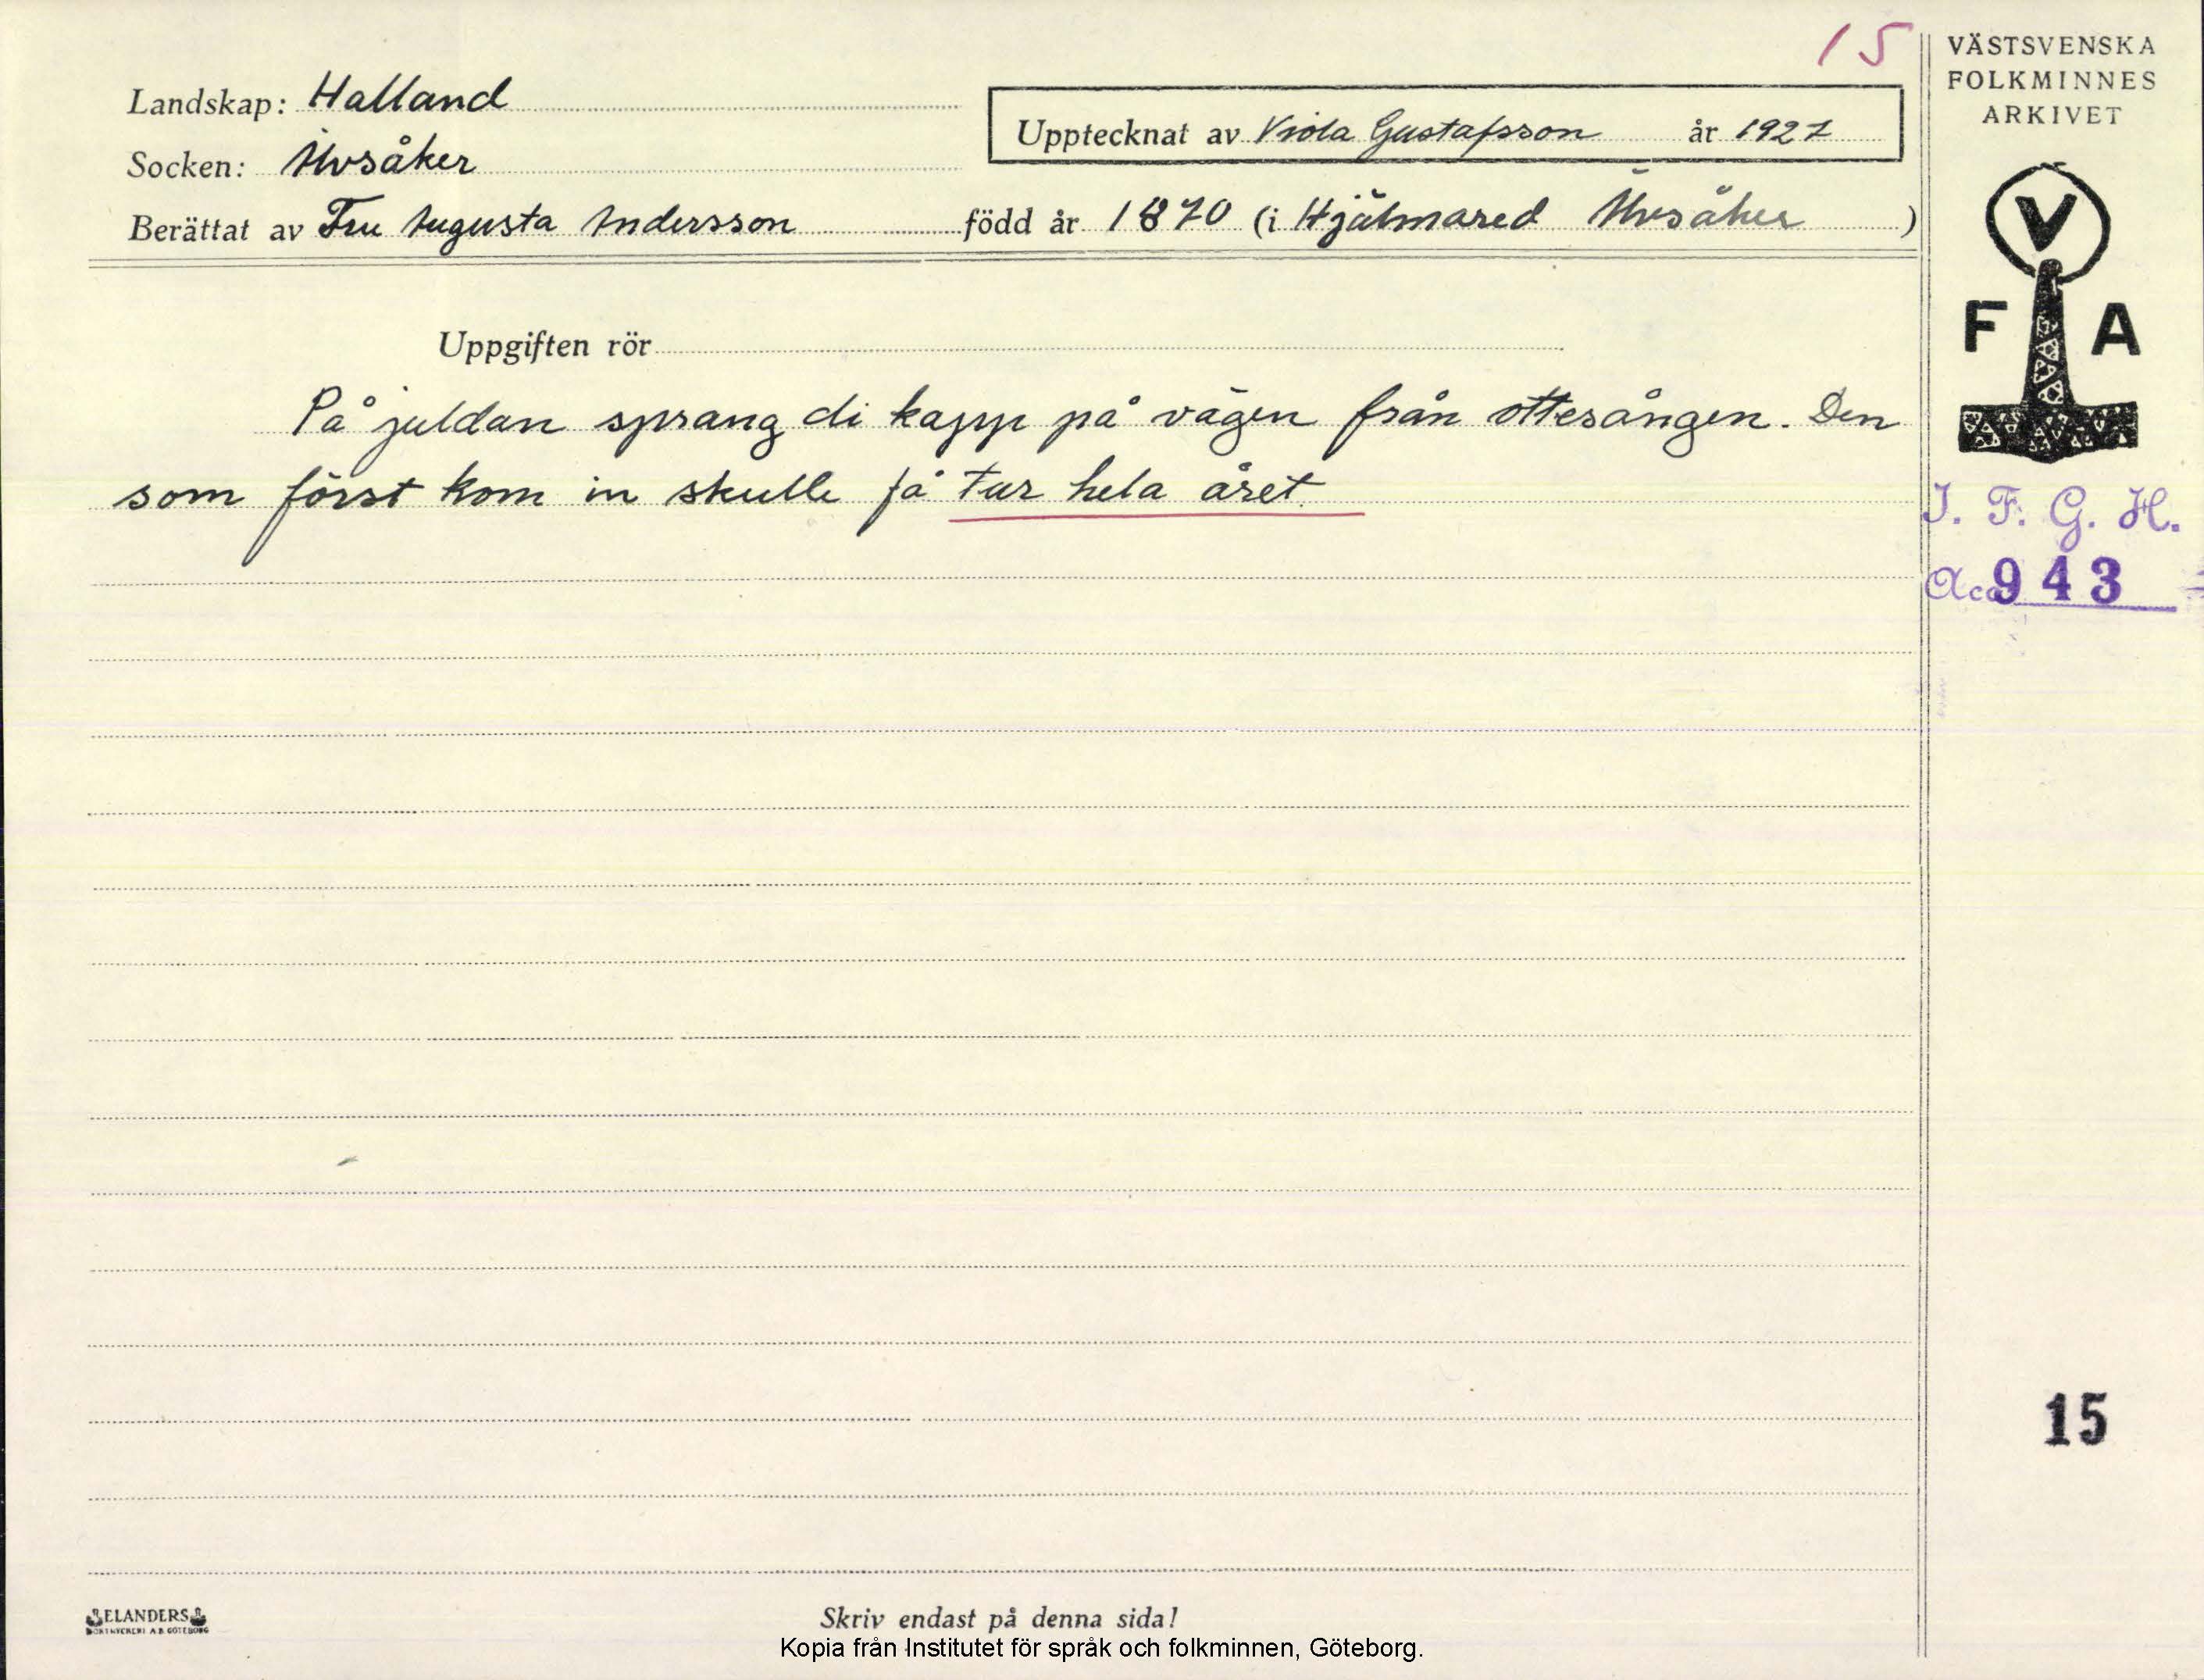 15
VÄSTSVENSKA
FOLKMINNES
ARKIVET
Landskap: Halland
Upptecknat av Viola Gustafsson år 1927
Socken: Älvsåker
Berättat av Fru Augusta Andersson född år 1870 (i Hjälmared Älvsåker )
V
F A
Uppgiften rör
På juldan sprang di kapp på vägen från ottesången. Den
som först kom in skulle få tur hela året.
I. F. G. H.
Acc 943
15
ELANDERS
BOKTRYCKERI A.B. GÖTEBORG
Skriv endast på denna sida!
Kopia från Institutet för språk och folkminnen, Göteborg.